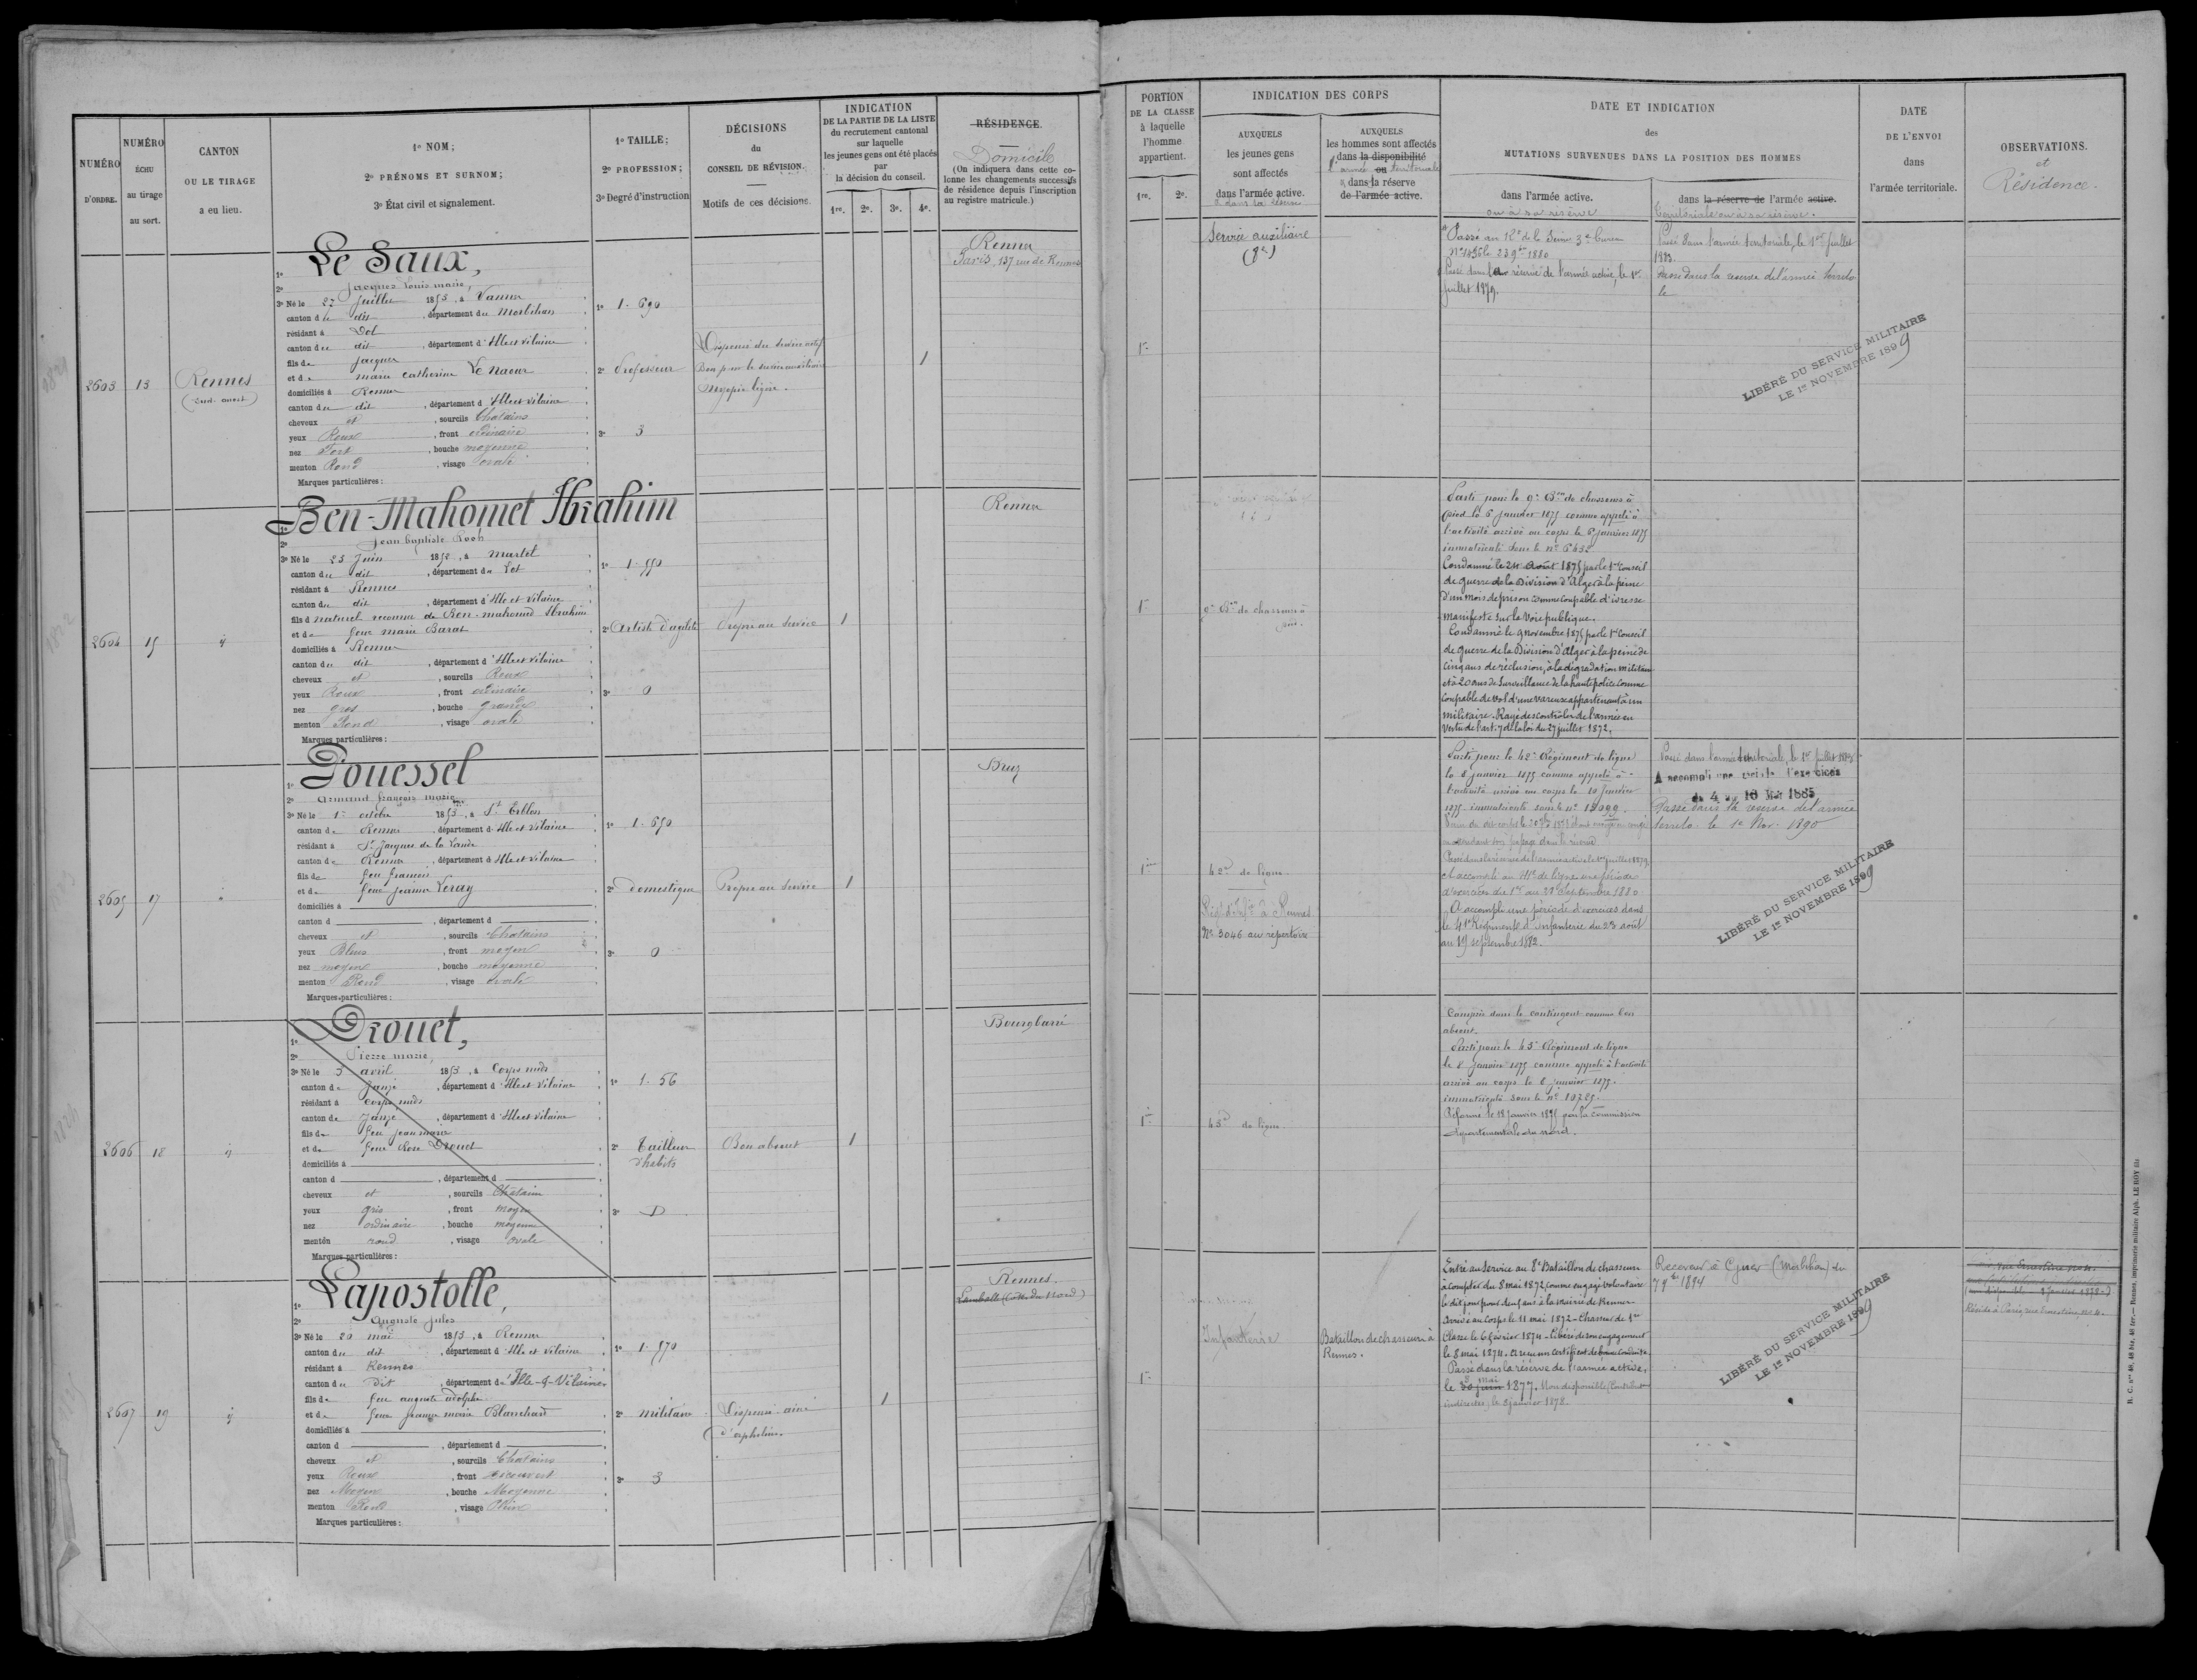 NUMÉRO
D'ORDRE.
NUMÉRO
ÉCHU
au tirage
au sort.
CANTON
OU LE TIRAGE
a eu lieu.
1º NOM;
2º PRÉNOMS ET SURNOM;
3º État civil et signalement.
1º TAILLE;
2º PROFESSION;
3º Degré d'instruction
DÉCISIONS
du
CONSEIL DE RÉVISION.
Motifs de ces décisions.
INDICATION
DE LA PARTIE DE LA LISTE
du recrutement cantonal
sur laquelle
les jeunes gens ont été placés
par
la décision du conseil.
1re. 2e. 3e. 4e.
RÉSIDENCE.
Domicile
(On indiquera dans cette co-
lonne les changements successifs
de résidence depuis l'inscription
au registre matricule.)
PORTION
DE LA CLASSE
à laquelle
l'homme
appartient.
1re. 2e.
INDICATION DES CORPS
AUXQUELS
les jeunes gens
sont affectés
dans l'armée active.
AUXQUELS
les hommes sont affectés
dans la disponibilité
l'armée ou territoriale
dans la réserve
de l'armée active.
DATE ET INDICATION
des
MUTATIONS SURVENUES DANS LA POSITION DES HOMMES
dans l'armée active.
ou à sa réserve
dans la réserve de l'armée active.
territoriale ou à sa réserve.
DATE
DE L'ENVOI
dans
l'armée territoriale.
OBSERVATIONS.
et
Résidence.
2603
13
Rennes
(Sud-ouest)
Le Saux,
Jacques Louis marie,
3º Né le 27 Juillet 1853, à Vannes
canton de dit, département du Morbihan
résidant à Dol
canton du dit, département d'Ille et Vilaine
fils de Jacques
et de marie Catherine Le Naour
domiciliés à Rennes
canton du dit, département d'Ille et Vilaine
cheveux et, sourcils Chatains
yeux Roux, front ordinaire
nez Fort, bouche moyenne
menton Rond, visage ovale
Marques particulières:
1º 1.690
2º Professeur
3º 3
Dispensé du service actif
Bon pour le service auxiliaire
Myopie légère.
1
Rennes
Paris, 137 rue de Rennes
1re
Service auxiliaire
Passé au Rt de la Seine 3e bureau
Passé dans la réserve de l'armée active, le 1er
Juillet 1879.
Passé dans l'armée territoriale, le 1er Juillet
1883
Passé dans la reserve de l'armée territo
le
LIBÉRÉ DU SERVICE MILITAIRE
LE 1er NOVEMBRE 1899
2604
15
Ben-Mahomet Ibrahim
Jean baptiste Roch
3º Né le 23 Juin 1852, à Martel
canton du dit, département du Lot
résidant à Rennes
canton du dit, département d'Ille et Vilaine
fils d naturel reconnu de Ben-mahomed Ibrahim
et de feue marie Barat
domiciliés à Rennes
canton du dit, département d'Ille et Vilaine
cheveux et, sourcils Roux
yeux Roux, front ordinaire
nez gros, bouche grande
menton Rond, visage ovale
Marques particulières:
1º 1.550
2º Artiste d'agilité
3º 0
Propre au service
1
Rennes
1re
9e Bon de chasseurs à
pied.
Parti pour le 9e Bon de chasseurs à
pied le 6 Janvier 1875 comme appelé à
l'activité arrivé au corps le 6 janvier 1875
immatriculé sous le nº 6432
Condamné le 24 Août 1875 par le 1er Conseil
de guerre de la Division d'Alger à la peine
d'un mois de prison comme coupable d'ivresse
manifeste sur la voie publique.
Condamné le 9 novembre 1875 par le 1er Conseil
de guerre de la Division d'Alger à la peine de
cinq ans de réclusion, à la dégradation militaire
et à 20 ans de surveillance de la haute police comme
coupable de vol d'une vareuse appartenant à un
militaire. Rayé des contrôles de l'armée en
vertu de l'art. 7 de la loi du 27 juillet 1872.
2605
17
Douessel
Armand françois marie
3º Né le 1er octobre 1853, à St Erblon
canton de Rennes, département d'Ille et Vilaine
résidant à St Jacques de la Lande
canton de Rennes, département d'Ille et Vilaine
fils de feu francois
et de feue jeanne Leray
domiciliés à
canton d, département d
cheveux et, sourcils Chatains
yeux Bleus, front moyen
nez moyen, bouche moyenne
menton Rond, visage ovale
Marques particulières:
1º 1.650
2º Domestique
3º 0
Propre au service
1
Bruz
1re
42e de ligne
Nº 3046 au répertoire
Parti pour le 42e Régiment de ligne
le 8 janvier 1875 comme appelé à
l'activité arrivé au corps le 10 Janvier
1875
en attendant son passage dans la réserve
Passé dans la réserve de l'armée active le 1er juillet 1879
et accompli au 41e de ligne une période
d'exercices du 1er au 28 Septembre 1880
A accompli une période d'exercices dans
le 41e Régiment d'infanterie du 23 août
au 19 septembre 1882.
Passé dans l'armée territoriale, le 1er Juillet 1883
A accompli une période d'exercices
du 4 au 16 Mai 1885
Passé dans la reserve de l'armée
territo. le 1e Nov. 1890
LIBÉRÉ DU SERVICE MILITAIRE
LE 1er NOVEMBRE 1899
2606
18
Drouet,
Pierre marie,
3º Né le 3 avril 1853, à Corps nuds
canton de Janzé, département d'Ille et Vilaine
résidant à Corps nuds
canton de Janzé, département d'Ille et Vilaine
fils de feu jean marie
et de feue Rose Drouet
domiciliés à
canton d, département d
cheveux et, sourcils Châtains
yeux gris, front moyen
nez ordinaire, bouche moyenne
menton rond, visage ovale
Marques particulières:
1º 1.56
2º Tailleur
d'habits
3º D
Bon absent
1
Bourgbarré
1re
43e de ligne
Compris dans le contingent comme bon
absent.
Parti pour le 43e Régiment de ligne
le 8 Janvier 1875 comme appelé à l'activité
arrivé au corps le 8 janvier 1875.
immatriculé sous le nº 10725.
Réformé le 18 janvier 1875 par la commission
départementale du nord.
2607
19
Lapostolle,
Auguste Jules
3º Né le 20 mai 1853, à Rennes
canton du dit, département d'Ille et Vilaine
résidant à Rennes
canton du Dit, département d'Ille-&-Vilaine
fils de feu auguste adolphe
et de feue jeanne marie Blanchard
domiciliés à
canton d, département d
cheveux et, sourcils Chatains
yeux Roux, front découvert
nez Moyen, bouche Moyenne
menton Rond, visage
Marques particulières:
1º 1.570
2º militaire
3º 3
Dispensé ainé
d'orphelins.
1
Rennes.
Lamballe (Côtes du Nord)
1re
Infanterie
Bataillon de chasseurs à
Rennes.
Entré au service au 8e Bataillon de chasseurs
à compter du 8 mai 1872, comme engagé volontaire
le dit jour pour deux ans à la Mairie de Rennes
Arrivé au Corps le 11 mai 1872 - Chasseur de 1re
Classe le 6 février 1874 - Libéré de son engagement
le 8 mai 1874. et reçu un certificat de bonne conduite
Passé dans la réserve de l'armée active,
le 30 juin 8 mai 1877. Non disponible (Contribut
indirectes) le 2 janvier 1878.
Receveur à Guer (Morbihan) du
7 9bre 1894
LIBÉRÉ DU SERVICE MILITAIRE
LE 1er NOVEMBRE 1899
Réside à Paris, rue Ernestine, nº 4.
R. C. Nos 46, 48 bis, 48 ter. — Rennes, imprimerie militaire Alph. LE ROY fils